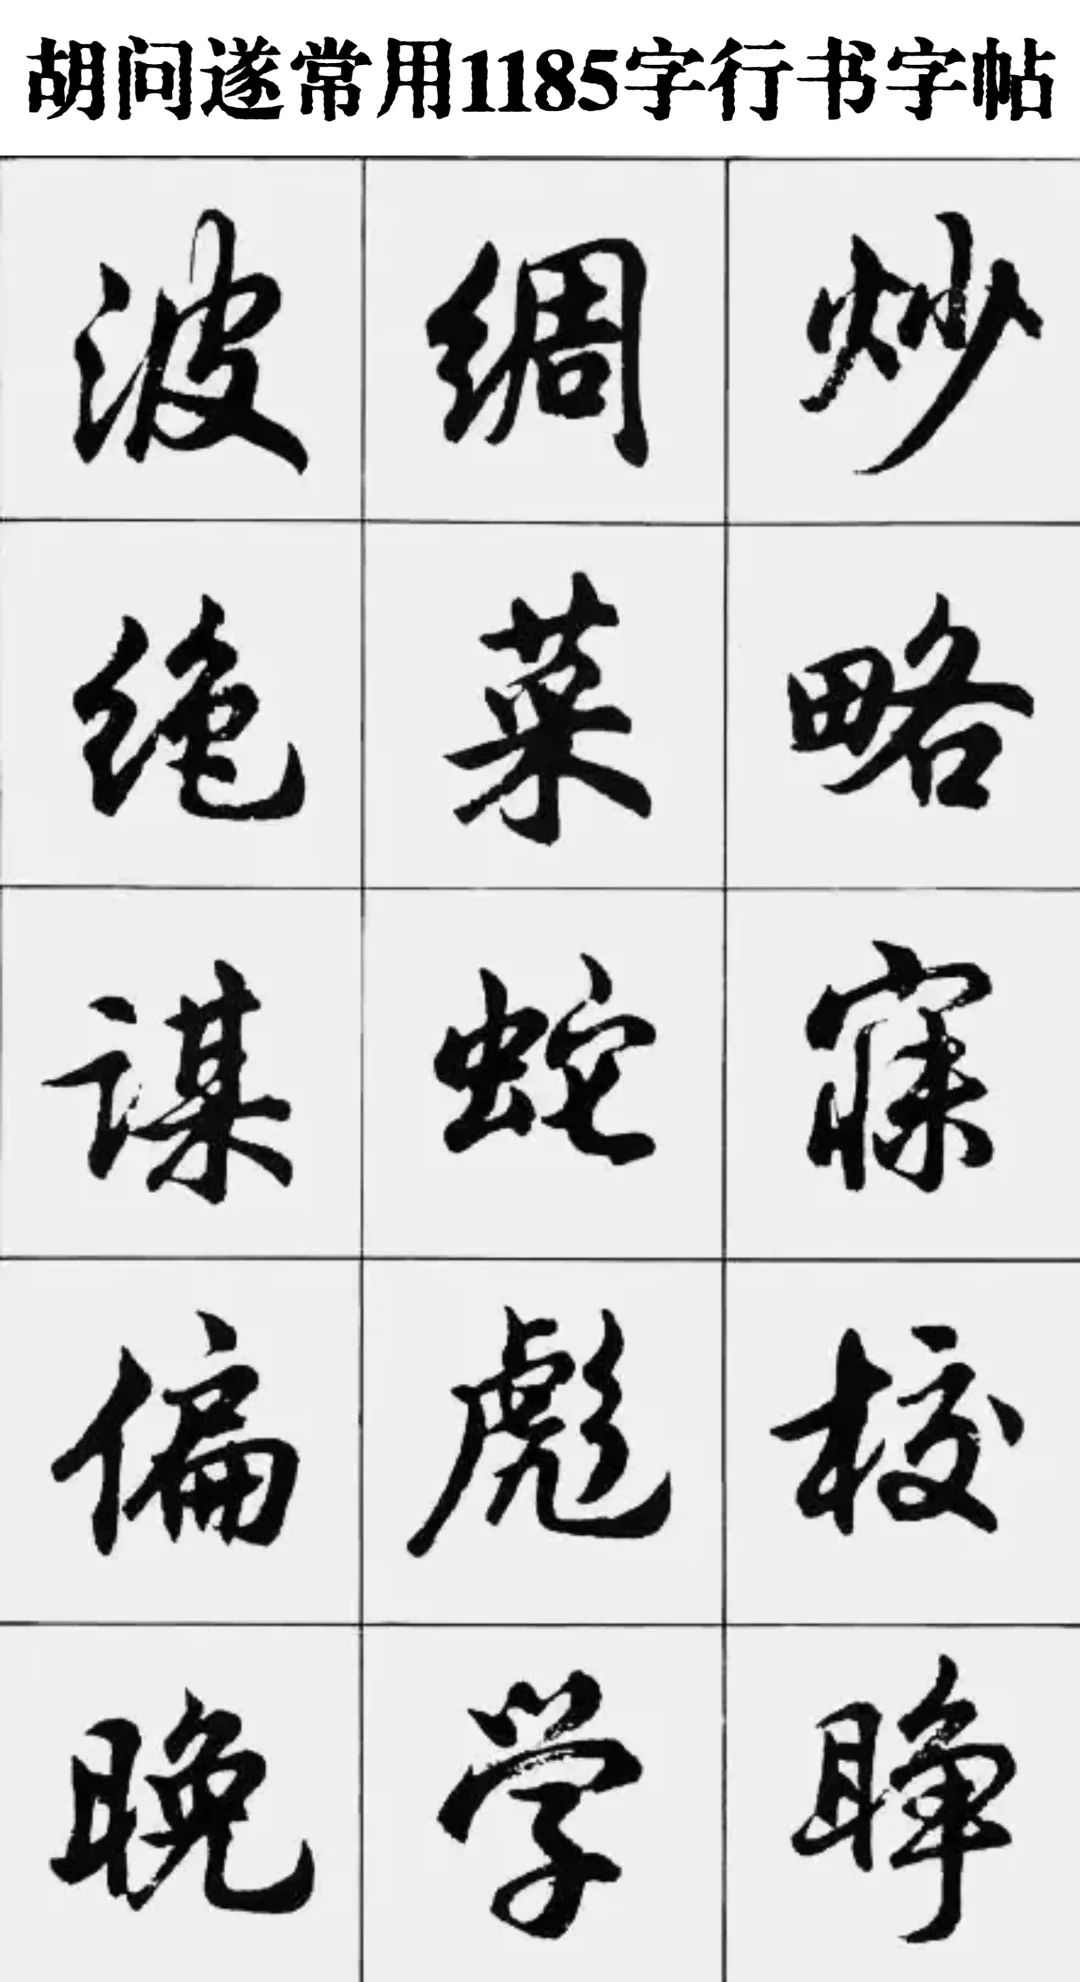 胡问遂常用1185字行书字帖
波 绸 炒
绝 菜 略
谋 蛇 寐
偏 彪 校
晚 学 睁